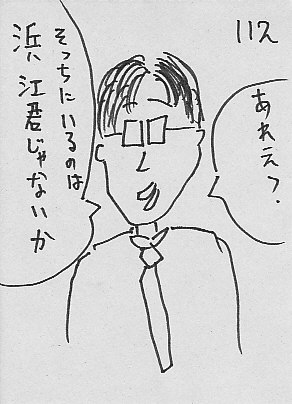 112
あれえ？
そっちにいるのは
浜江君じゃないか